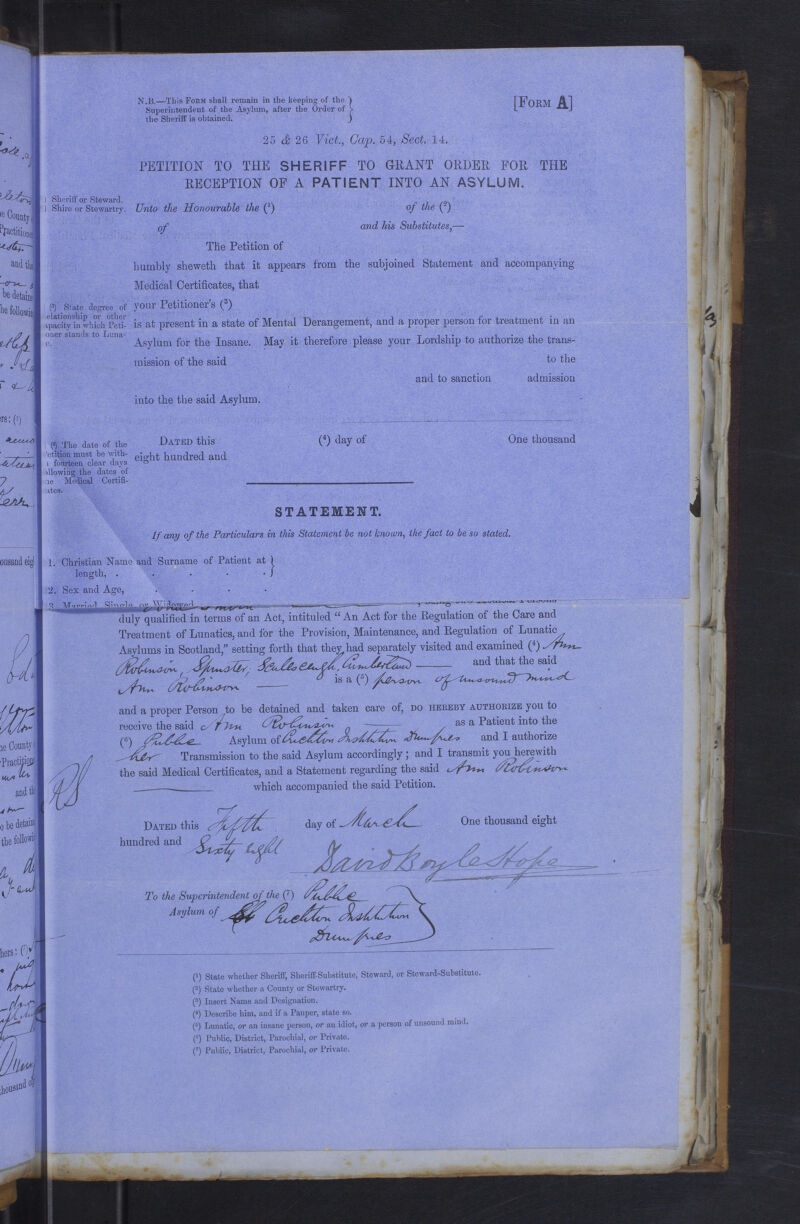 N.B.—This Form shall remain in the keeping of the
Superintendent of the Asylum, after the Order of
the Sheriff is obtained.
[Form A]
25 & 26 Vict., Cap. 54, Sect. 14.
PETITION TO THE SHERIFF TO GRANT ORDER FOR THE
RECEPTION OF A PATIENT INTO AN ASYLUM.
Sheriff or Steward.
Shire or Stewartry.
Unto the Honourable the (1) of the (2)
of and his Substitutes,—
The Petition of
humbly sheweth that it appears from the subjoined Statement and accompanying
Medical Certificates, that
(3) State degree of
relationship or other
capacity in which Peti-
oner stands to Luna-
your Petitioner's (3)
is at present in a state of Mental Derangement, and a proper person for treatment in an
Asylum for the Insane. May it therefore please your Lordship to authorize the trans-
mission of the said to the
and to sanction admission
into the the said Asylum.
(4) The date of the
etition must be with-
fourteen clear days
ollowing the dates of
Medical Certifi-
cates.
Dated this (4) day of One thousand
eight hundred and
STATEMENT.
If any of the Particulars in this Statement be not known, the fact to be so stated.
1. Christian Name and Surname of Patient at
length, . . . . .
2. Sex and Age, . . . .
3. Married, Single, or Widowed
duly qualified in terms of an Act, intituled "An Act for the Regulation of the Care and
Treatment of Lunatics, and for the Provision, Maintenance, and Regulation of Lunatic
Asylums in Scotland," setting forth that they had separately visited and examined (4) Ann
Robinson, Spinster, Scalesceugh, Cumberland — and that the said
Ann Robinson — is a (5) person of unsound mind
and a proper Person to be detained and taken care of, DO HEREBY AUTHORIZE you to
receive the said Ann Robinson — as a Patient into the
(6) Public Asylum of Crichton Institution Dumfries and I authorize
her Transmission to the said Asylum accordingly; and I transmit you herewith
the said Medical Certificates, and a Statement regarding the said Ann Robinson
— which accompanied the said Petition.
Dated this Fifth day of March One thousand eight
hundred and Sixty eight
David Boyle Hope
To the Superintendent of the (7) Public
Asylum of Crichton Institution
Dumfries
(1) State whether Sheriff, Sheriff-Substitute, Steward, or Steward-Substitute.
(2) State whether a County or Stewartry.
(3) Insert Name and Designation.
(4) Describe him, and if a Pauper, state so.
(5) Lunatic, or an insane person, or an idiot, or a person of unsound mind.
(6) Public, District, Parochial, or Private.
(7) Public, District, Parochial, or Private.